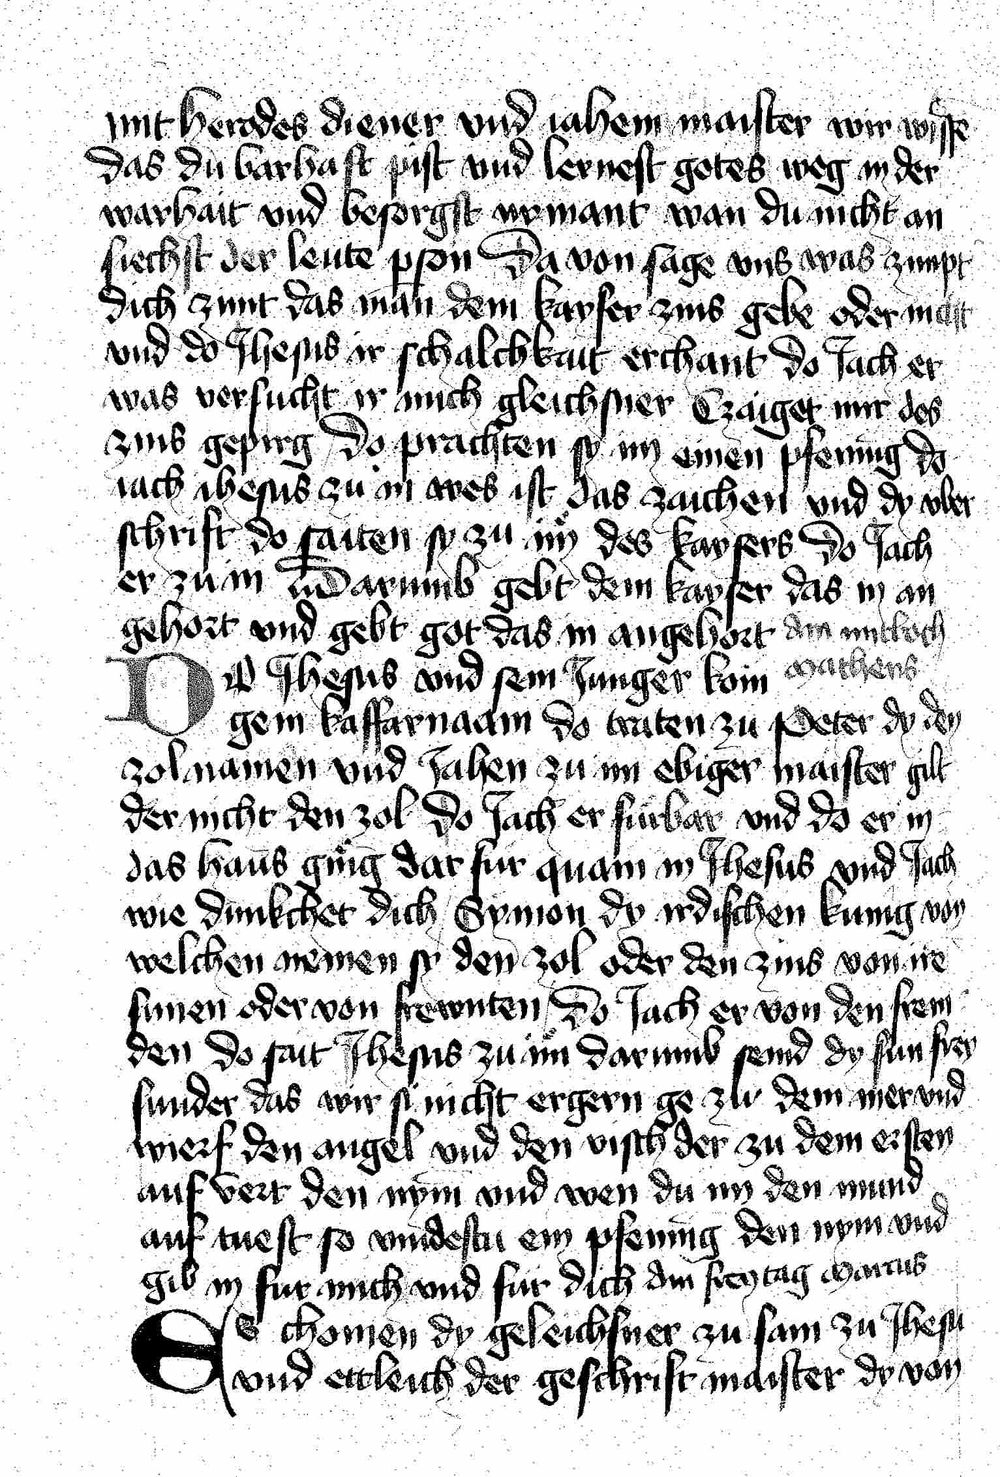 mit herodes diener vnd iahem maister wir wisse
das du barhaft pist vnd lernest gotes weg in der
warhait vnd besorgst nymant wan du nicht an
siechst der leute pson Da von sage vns was zimpt
dich zimt das man dem kayser zins gebe oder nicht
vnd do Jhesus ir schalchkait erchant do Jach er
was versucht ir mich gleichsner Czaiget mir des
zins geprg Do prachten sy im einen pfening do
iach ihesus zu in wes ist das zaichen vnd dy vber
schrift do saiten sy zu im des kaysers Do Jach
er zu in Darumb gebt dem kayser das in an
gehort vnd gebt got das in angehort Am mitboch
Do Jhesus vnd sein Junger kom Matheus
gem kaffarnaam do traten zu Peter dy den
zol namen vnd Jahen zu im ebiger maister gilt
der nicht den zol Do Jach er furbar vnd do er in
das haus ging dar fur quam in Jhesus vnd Jach
wie dunkchet dich Symon dy irdischen kunig von
welchen nemen sy den zol oder den zins von ire
sunen oder von frewnten Do Jach er von den frem
den Do sait Jhesus zu im darumb seind dy sun frey
sunder das wir si nicht ergern ge zu dem mer vnd
wierf den angel vnd den visch der zu dem ersten
auf vert den nym vnd wen du im den mund
auf tuest so vindestu ein pfening den nym vnd
gib in fur mich vnd fur dich Am freytag Marcus
Es chomen dy geleichsner zu sam zu Jhesu
vnd ettleich der geschrift maister dy von